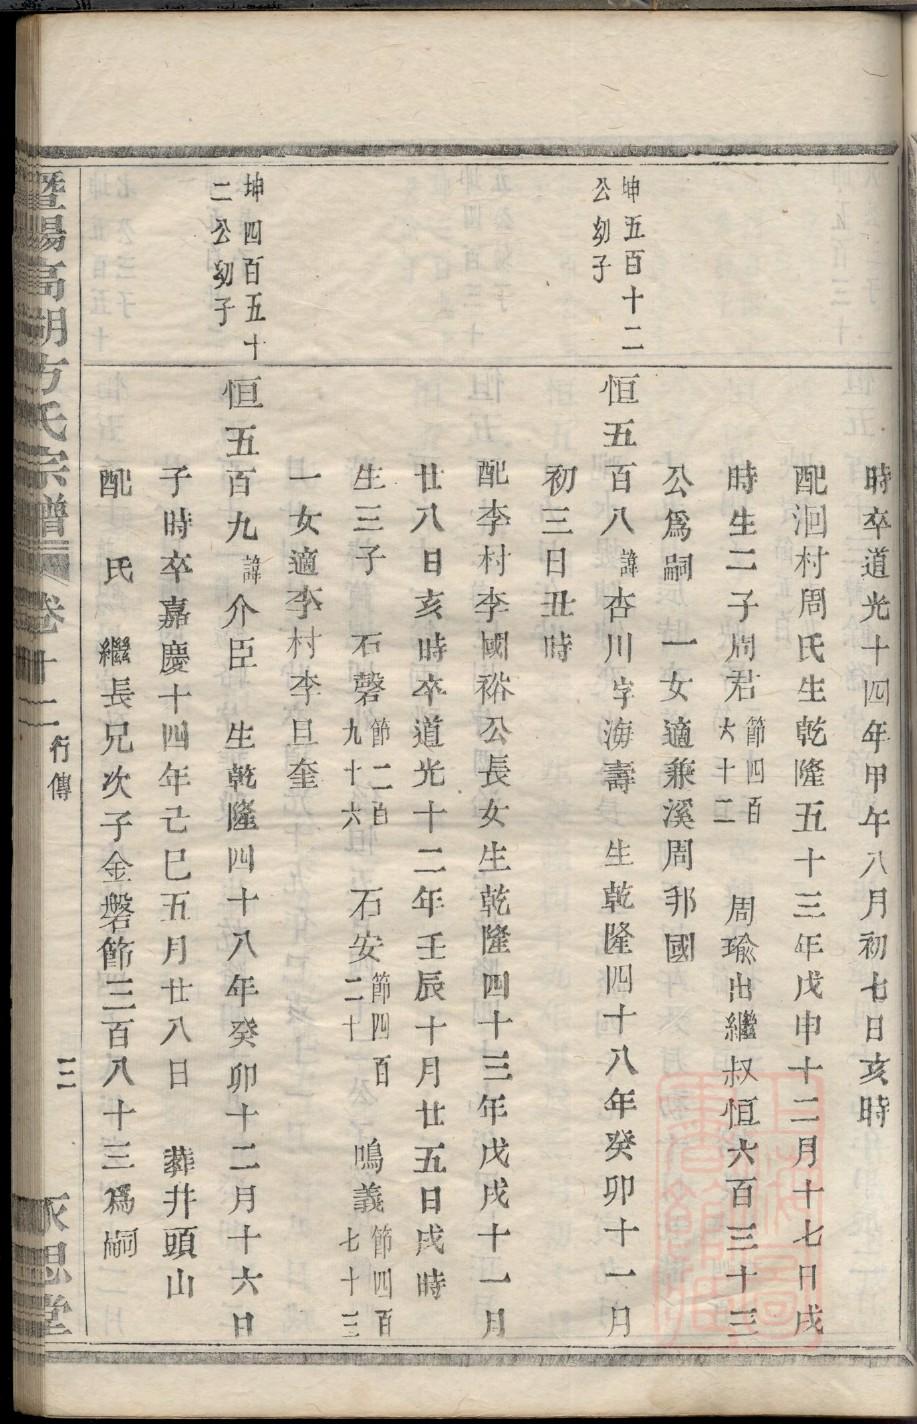 時卒道光十四年甲午八月初七日亥時
配洄村周氏生乾隆五十三年戊申十二月十七日戌
時生二子周君節四百六十二 周瑜出繼叔恒六百三十三
公爲嗣 一女適兼溪周邦國
坤五百十二
公幼子
恒五百八諱杏川字海壽 生乾隆四十八年癸卯十一月
初三日丑時
配李村李國裕公長女生乾隆四十三年戊戌十一月
廿八日亥時卒道光十二年壬辰十月廿五日戌時
生三子 石磬節二百九十六 石安節四百二十 鳴義節四百七十三
一女適李村李旦奎
坤四百五十
二公幼子
恒五百九諱介臣 生乾隆四十八年癸卯十二月十六日
子時卒嘉慶十四年己巳五月廿八日 葬井頭山
配 氏 繼長兄次子金磐節三百八十三爲嗣
暨陽高湖方氏宗譜 卷十二 行傳 三 永思堂